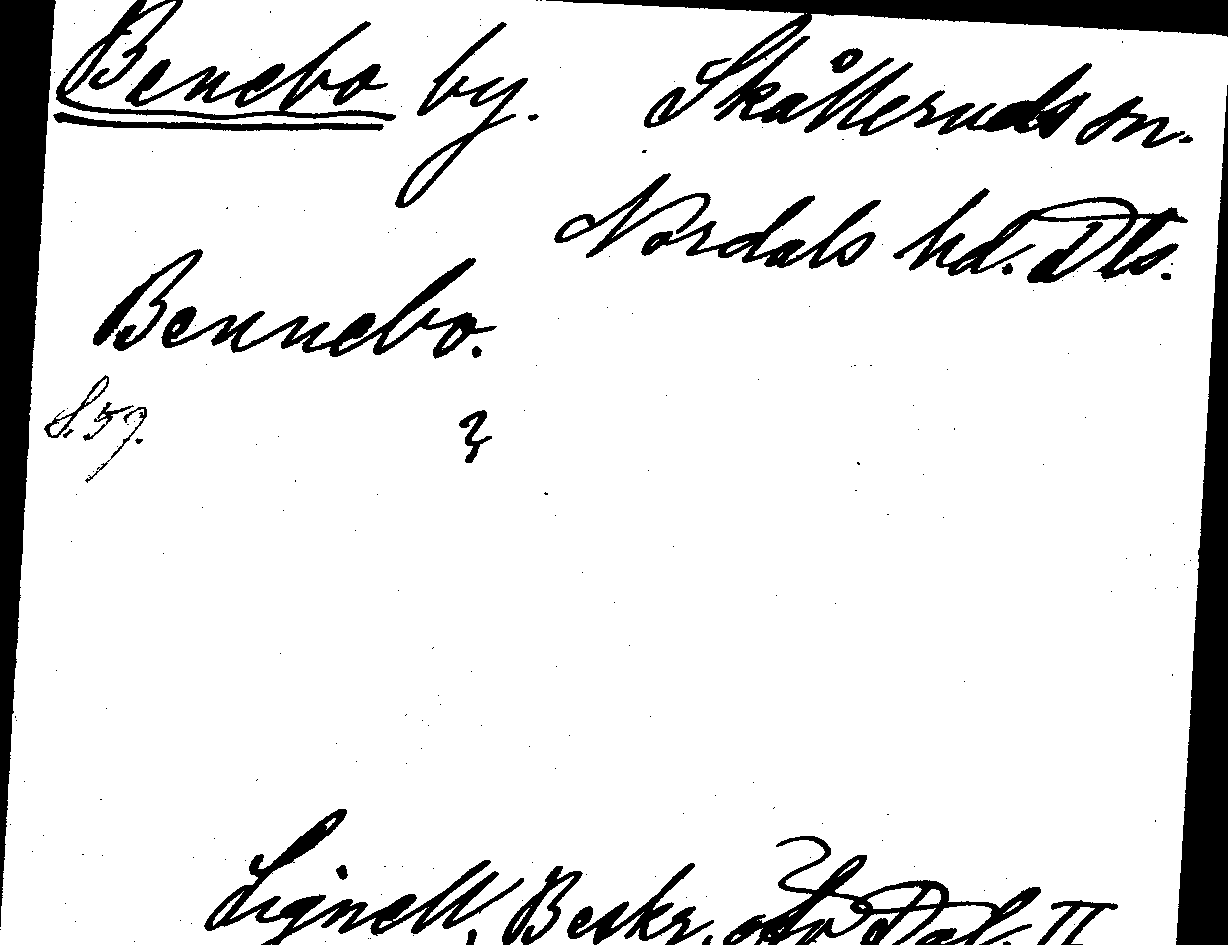 Benebo by. Skålleruds sn.
Nordals hd. Dls.
Bennebo.
S. 59.
?
Lignell, Beskr. öfv Dal. II